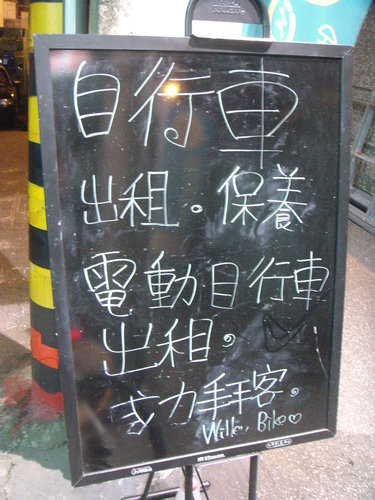 自行車
出租。保養
電動自行車
出租。
戈力手工客。
Bike